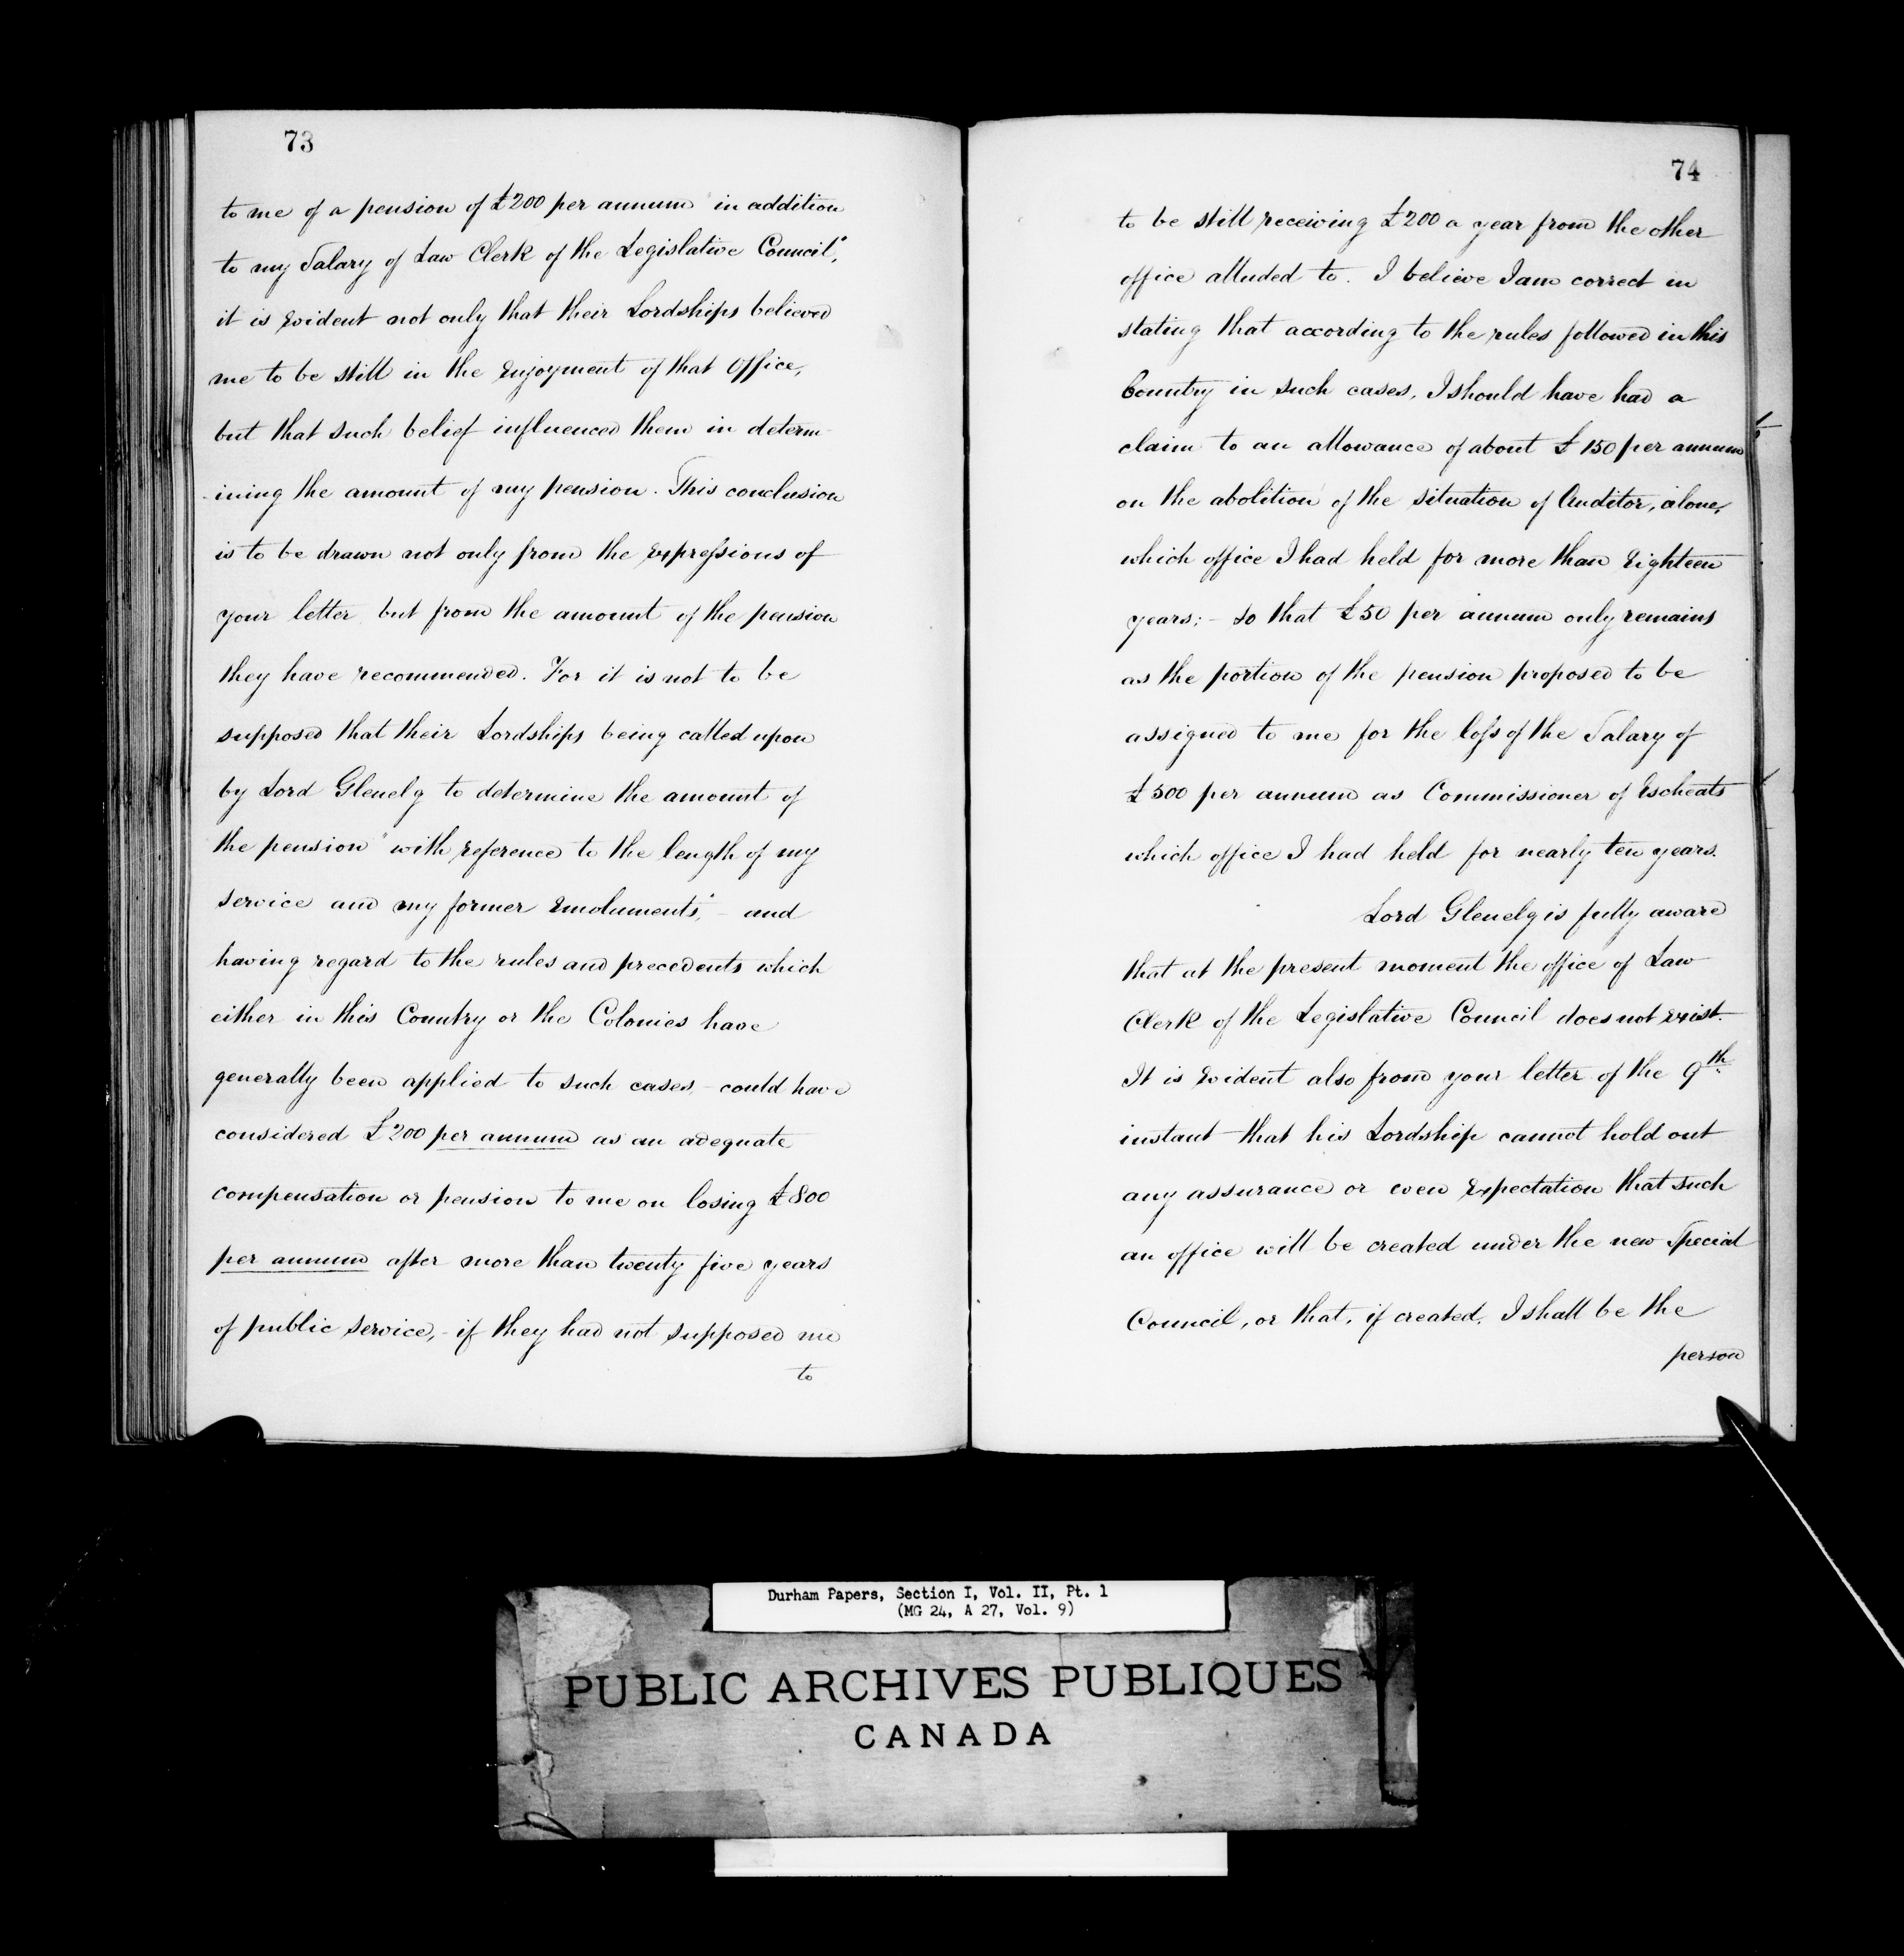 73
to me of a pension of £200 per annum "in addition
to my Salary of Law Clerk of the Legislative Council",
it is evident not only that their Lordships believed
me to be still in the enjoyment of that Office,
but that such belief influenced them in determ-
-ining the amount of my pension. This conclusion
is to be drawn not only from the expressions of
your letter but from the amount of the pension
they have recommended. For it is not to be
supposed that their Lordships being called upon
by Lord Glenelg to determine the amount of
the pension "with reference to the length of my
service and my former emoluments", - and
having regard to the rules and precedents which
either in this Country or the Colonies have
generally been applied to such cases, - could have
considered £200 per annum as an adequate
compensation or pension to me on losing £800
per annum after more than twenty five years
of public service, - if they had not supposed me
to
74
to be still receiving £200 a year from the other
office alluded to. I believe I am correct in
stating that according to the rules followed in this
Country in such cases, I should have had a
claim to an allowance of about £150 per annum
on the abolition of the situation of Auditor, alone,
which office I had held for more than eighteen
years; - so that £50 per annum only remains
as the portion of the pension proposed to be
assigned to me for the loss of the Salary of
£500 per annum as Commissioner of Escheats
which office I had held for nearly ten years.
Lord Glenelg is fully aware
that at the present moment the office of Law
Clerk of the Legislative Council does not exist.
It is evident also from your letter of the 9th
instant that his Lordship cannot hold out
any assurance or even expectation that such
an office will be created under the new Special
Council, or that, if created, I shall be the
person
Durham Papers, Section I, Vol. II, Pt. 1
(MG 24, A 27, Vol. 9)
PUBLIC ARCHIVES PUBLIQUES
CANADA